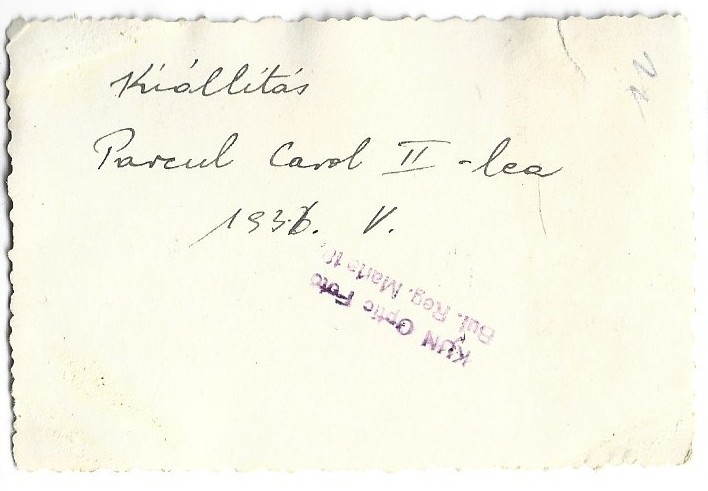 Kiállítás
Parcul Carol II-lea
1936. V.
KUN Optic Foto
Bul. Reg. Maria 10.